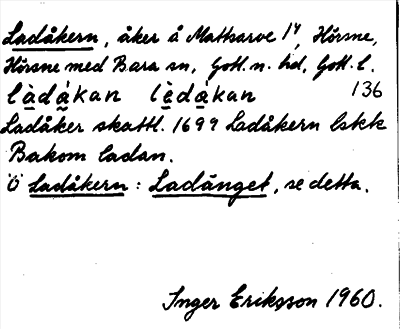 Ladåkern, åker å Mattsarve 1⁴, Hörsne,
Hörsne med Bara sn, Gotl. n. hd, Gotl. l.
làdá̀kan lèdá̀kan 136
Ladåker skattl. 1699 Ladåkern lskk
Bakom ladan.
Ö Ladåkern : Ladänget, se detta.
Inger Eriksson 1960.